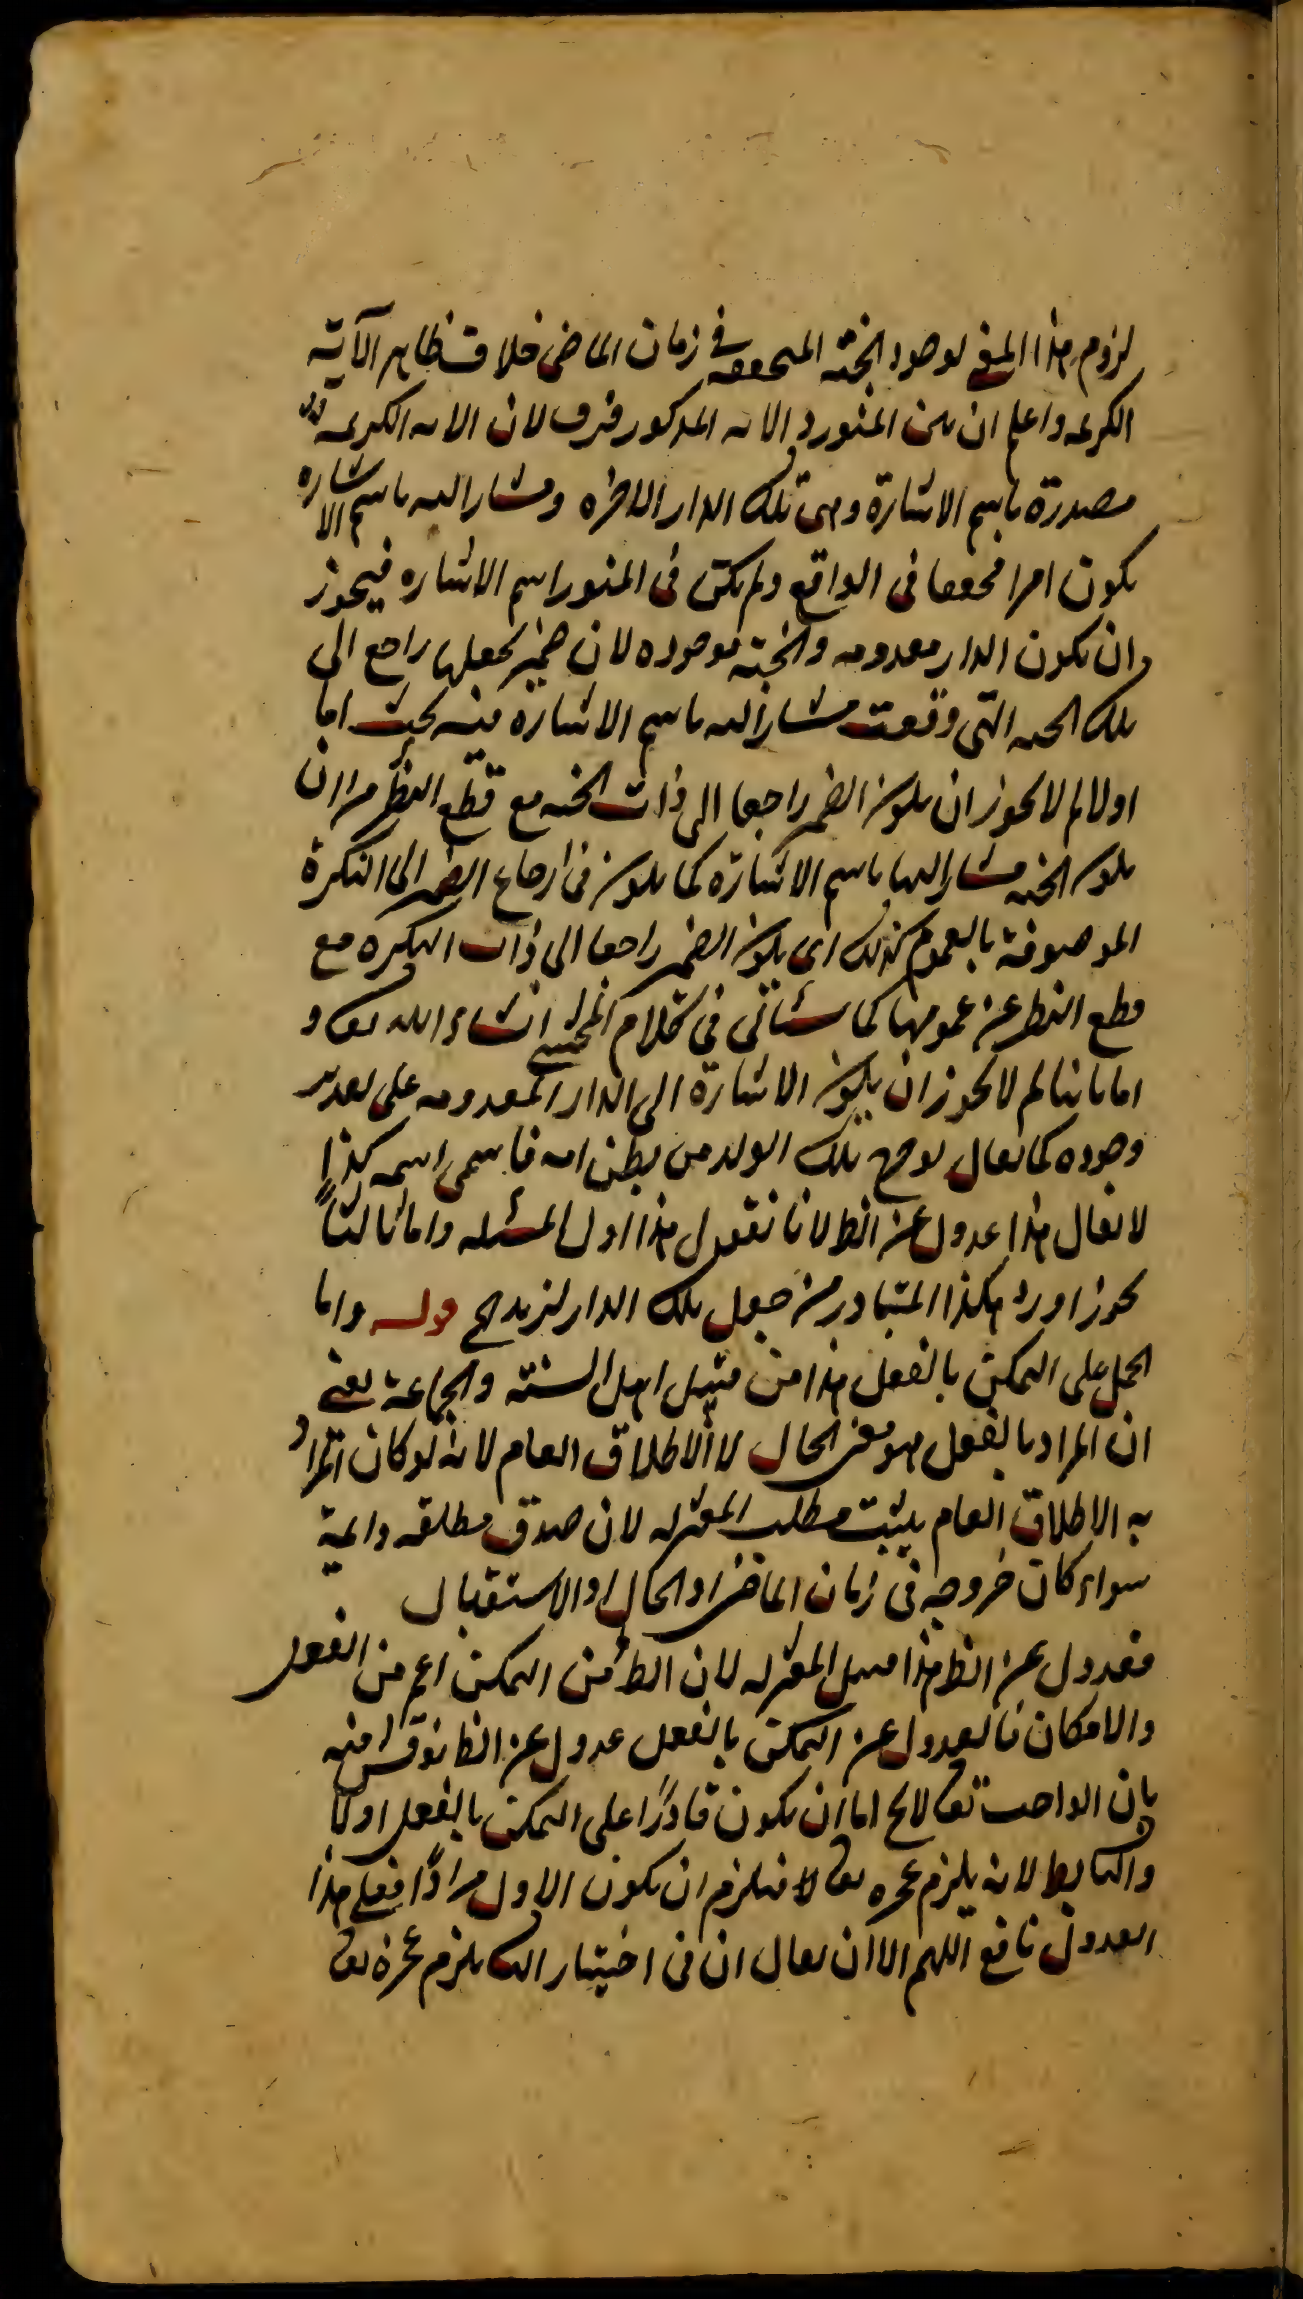 لزوم هذا المعنى لوجود الجنة المتحققة في زمان الماضى خلاف ظاهر الآية
الكريمه واعلم ان بين المنور والآية المذكور فرق لان الآية الكريمة
مصدرة باسم الاشارة وهى تلك الدار الاخره ومشار اليه باسم الاشاره
يكون امرا محققا فى الواقع ولم يكن فى المنور اسم الاشاره فيجوز
ان يكون الدار معدومه والجنة موجوده لان ضمير نجعلها راجع الى
تلك الجنة التى وقعت مشارا اليه باسم الاشارة فيه بحث اما
اولا لم لا يجوز ان يكون الضمير راجعا الى ذات الجنة مع قطع النظر من ان
يكون الجنة مشارا اليها باسم الاشارة كما يكون فى ارجاع الضمير الى النكرة
الموصوفة بالعموم كذلك اى يكون الضمير راجعا الى ذات النكره مع
قطع النظر عن عمومها كما سيأتى في كلام المحشى انشاء الله تعا و
اما ثانيا لم لا يجوز ان يكون الاشارة الى الدار المعدومه على تقدير
وجوده كما يقال لو تلك الولد من بطن امه فاسمى اسمه كذا
لا يقال هذا عدول عن الظ لانا نقول هذا اول المسئله واما ثالثاً
يجوز هكذا المتبادر من جعل تلك الدار لزيد قوله واما
الحمل على التمكين بالفعل هذا من قبيل اهل السنة والجماعة يعنى
ان المراد بالفعل هو معنى الحال لا الاطلاق العام لانه لو كان المراد
به الاطلاق العام يثبت مطلب المعتزله لان صدق مطلقه دائمية
سواء كان خروجه فى زمان الماضى او الحال او الاستقبال
فعدول عن الظ هذا المعتزله لان الظ من التمكين اعم من الفعل
والامكان فالعدول عن التمكين بالفعل عدول عن الظ نوقش فيه
بان الواجب تعا لا يخ اما ان يكون قادرًا على التمكين بالفعل اولا
والثا بط لانه يلزم عجزه تعا فيلزم ان يكون الاول مرادًا فعلى هذا
العدول نافع اللهم الا ان يقال ان فى اختيار الثا يلزم عجزه تعا